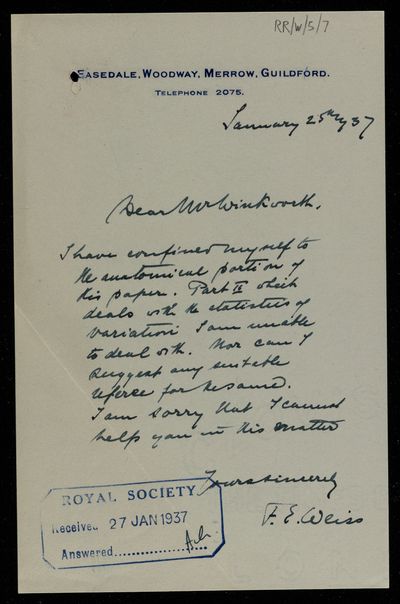 RR/W/5/7
EASEDALE, WOODWAY, MERROW, GUILDFORD.
TELEPHONE 2075.
January 25th/37
Dear Mr Winkworth,
I have confined myself to
the anatomical portion of
this paper. Part II which
deals with the statistics of
variation I am unable
to deal with. Nor can I
suggest any suitable
referee for the same.
I am sorry that I cannot
help you in this matter
Yours sincerely
F. E. Weiss
ROYAL SOCIETY
Received 27 JAN 1937
Answered..................